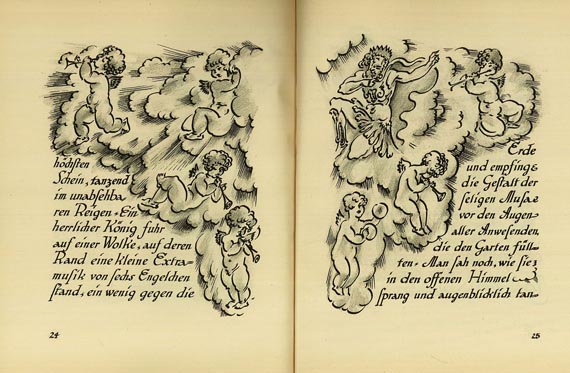 höchsten
Schein, tanzend
im unabsehba
ren Reigen. Ein
herrlicher König fuhr
auf einer Wolke, auf deren
Rand eine kleine Extra-
musik von sechs Engelchen
stand, ein wenig gegen die
24
Erde
und empfing
die Gestalt der
seligen Musa
vor den Augen
aller Anwesenden,
die den Garten füll-
ten. Man sah noch, wie sie
in den offenen Himmel
sprang und augenblicklich tan-
25